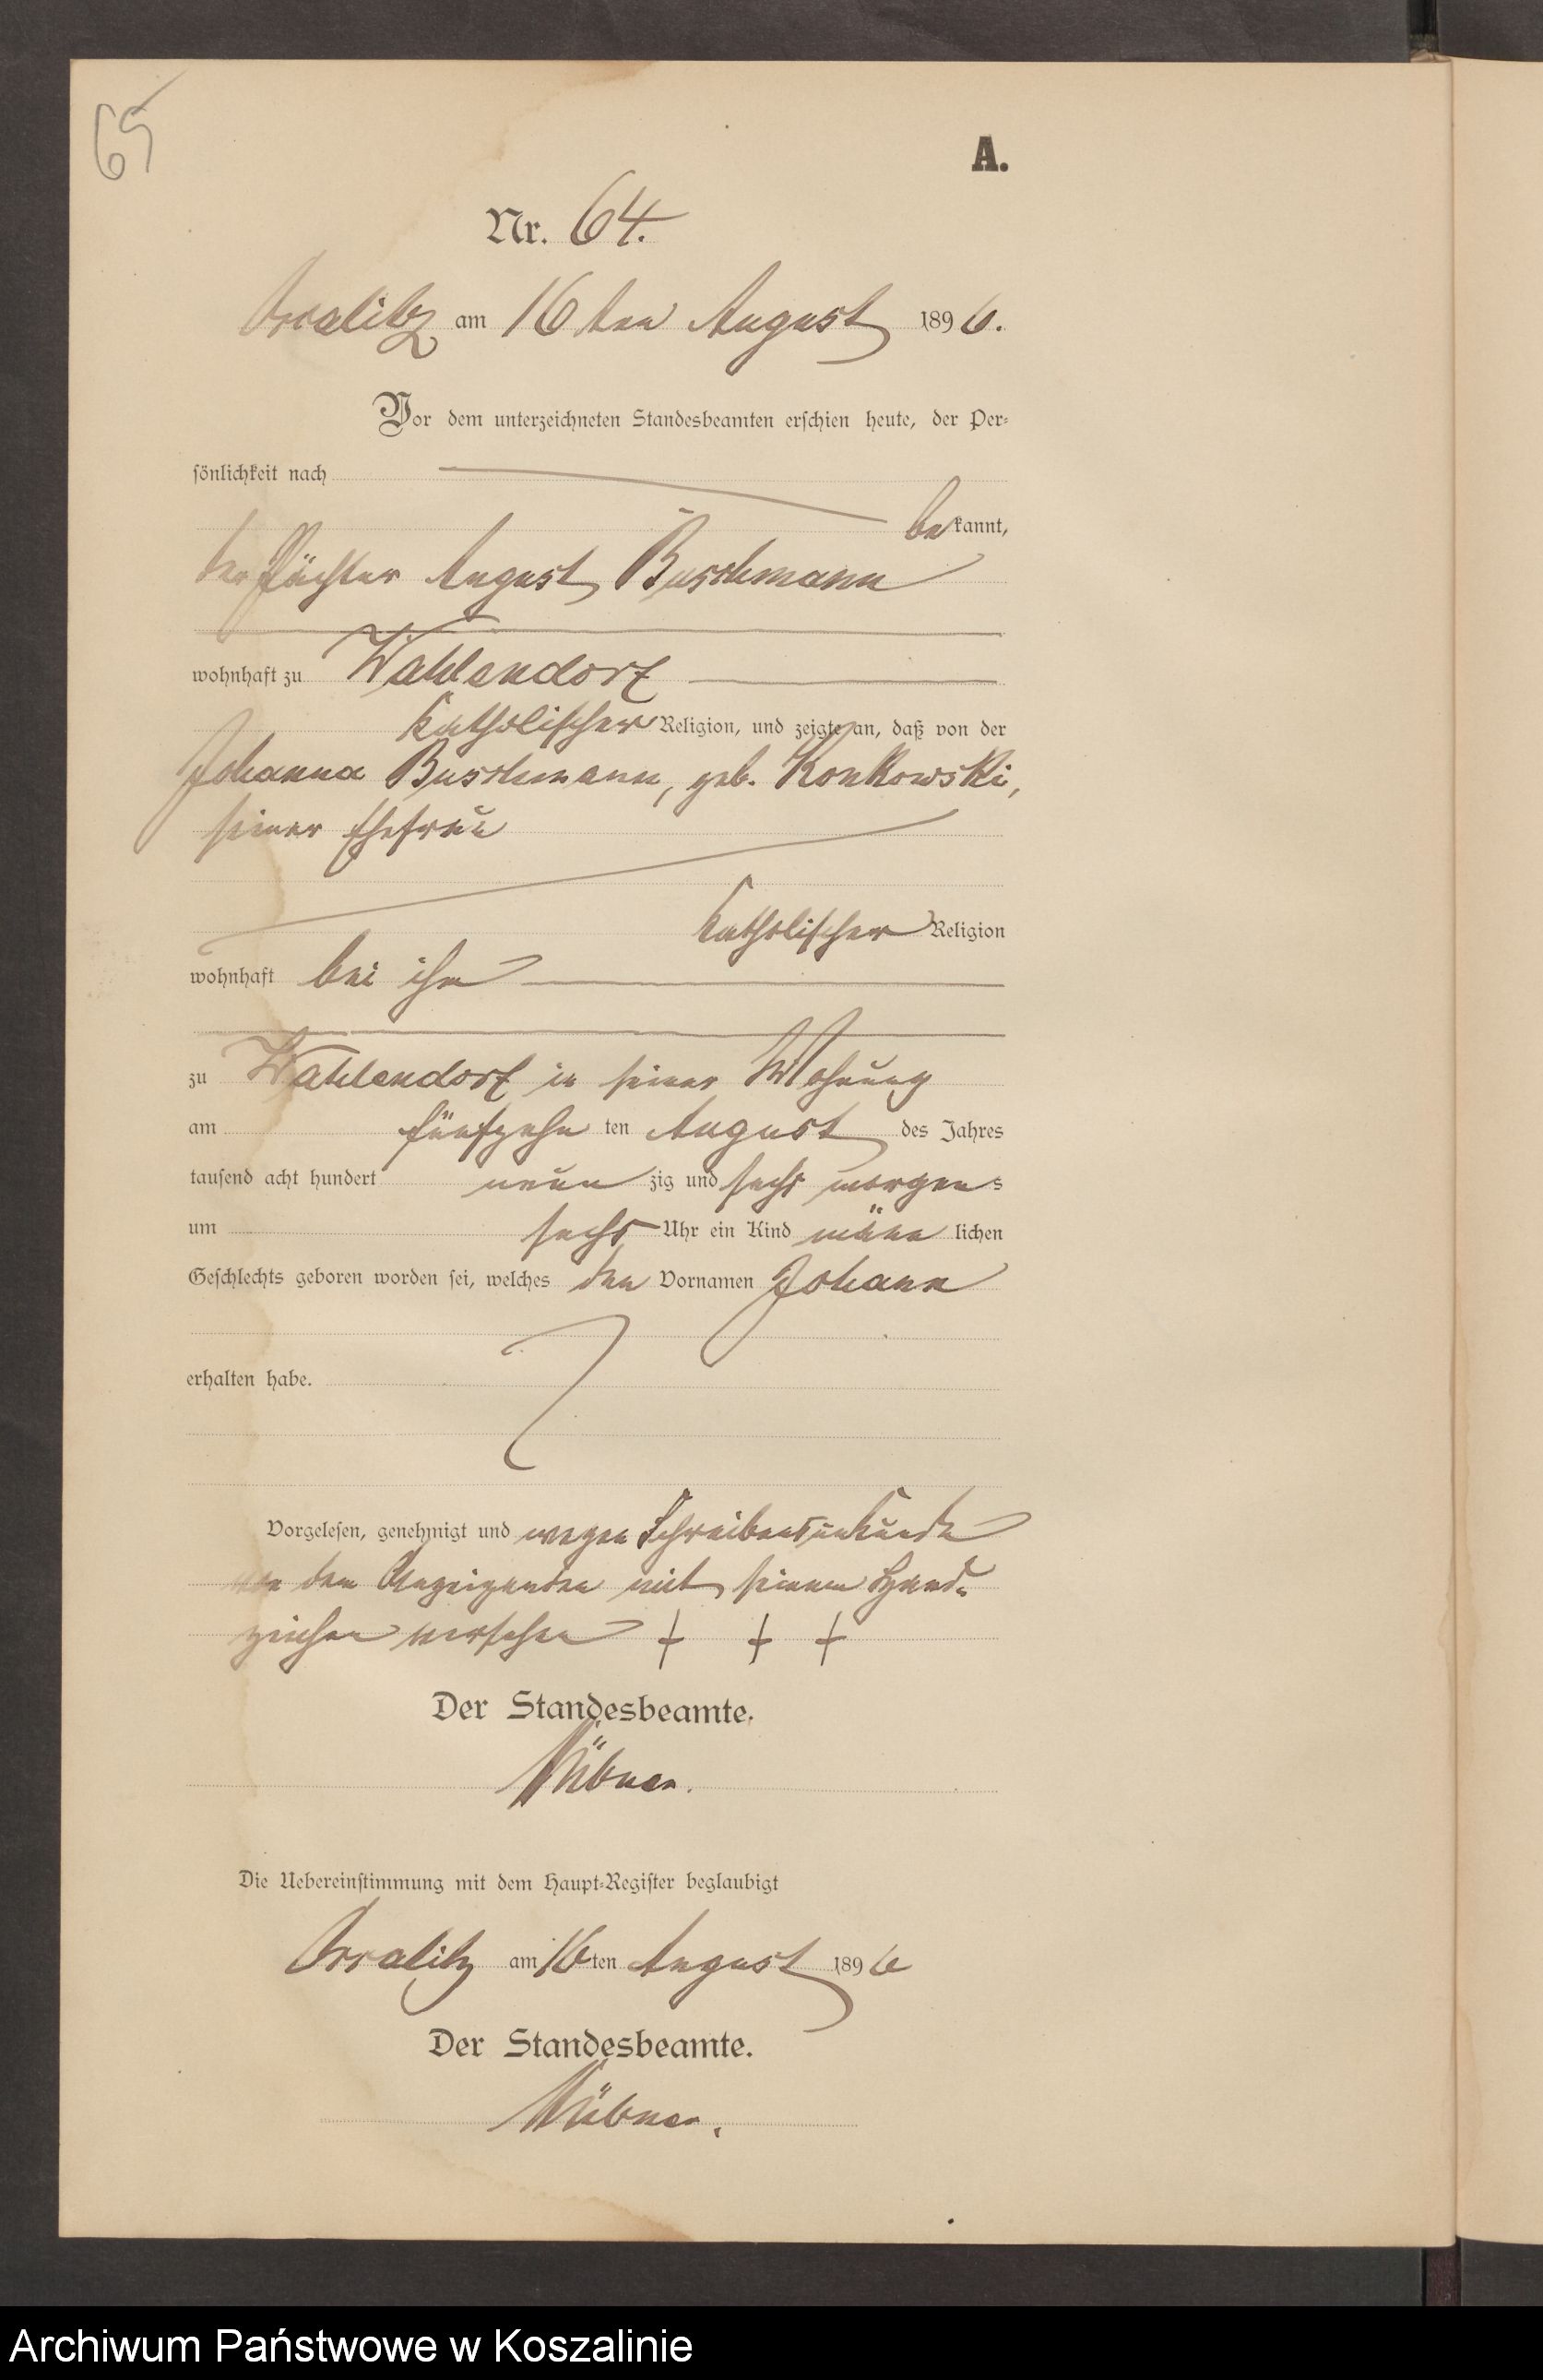 65
A.
Nr. 64.
Oslawitz am 16 ten August 1896.
Vor dem unterzeichneten Standesbeamten erschien heute, der Per-
sönlichkeit nach
bekannt,
der Pächter August Buschmann
wohnhaft zu Wahlendorf
katholischer Religion, und zeigte an, daß von der
Johanna Buschmann, geb. Konkowski,
seiner Ehefrau
katholischer Religion
wohnhaft bei ihm
zu Wahlendorf in seiner Wohnung
am fünfzehn ten August des Jahres
tausend acht hundert neun zig und sechs morgens
um sechs Uhr ein Kind männ lichen
Geschlechts geboren worden sei, welches den Vornamen Johann
erhalten habe.
Vorgelesen, genehmigt und wegen Schreibensunkunde
von dem Anzeigenden mit seinem Hand-
zeichen versehen + + +
Der Standesbeamte.
Die Uebereinstimmung mit dem Haupt-Register beglaubigt
am 16 ten August 1896
Der Standesbeamte.
Archiwum Państwowe w Koszalinie